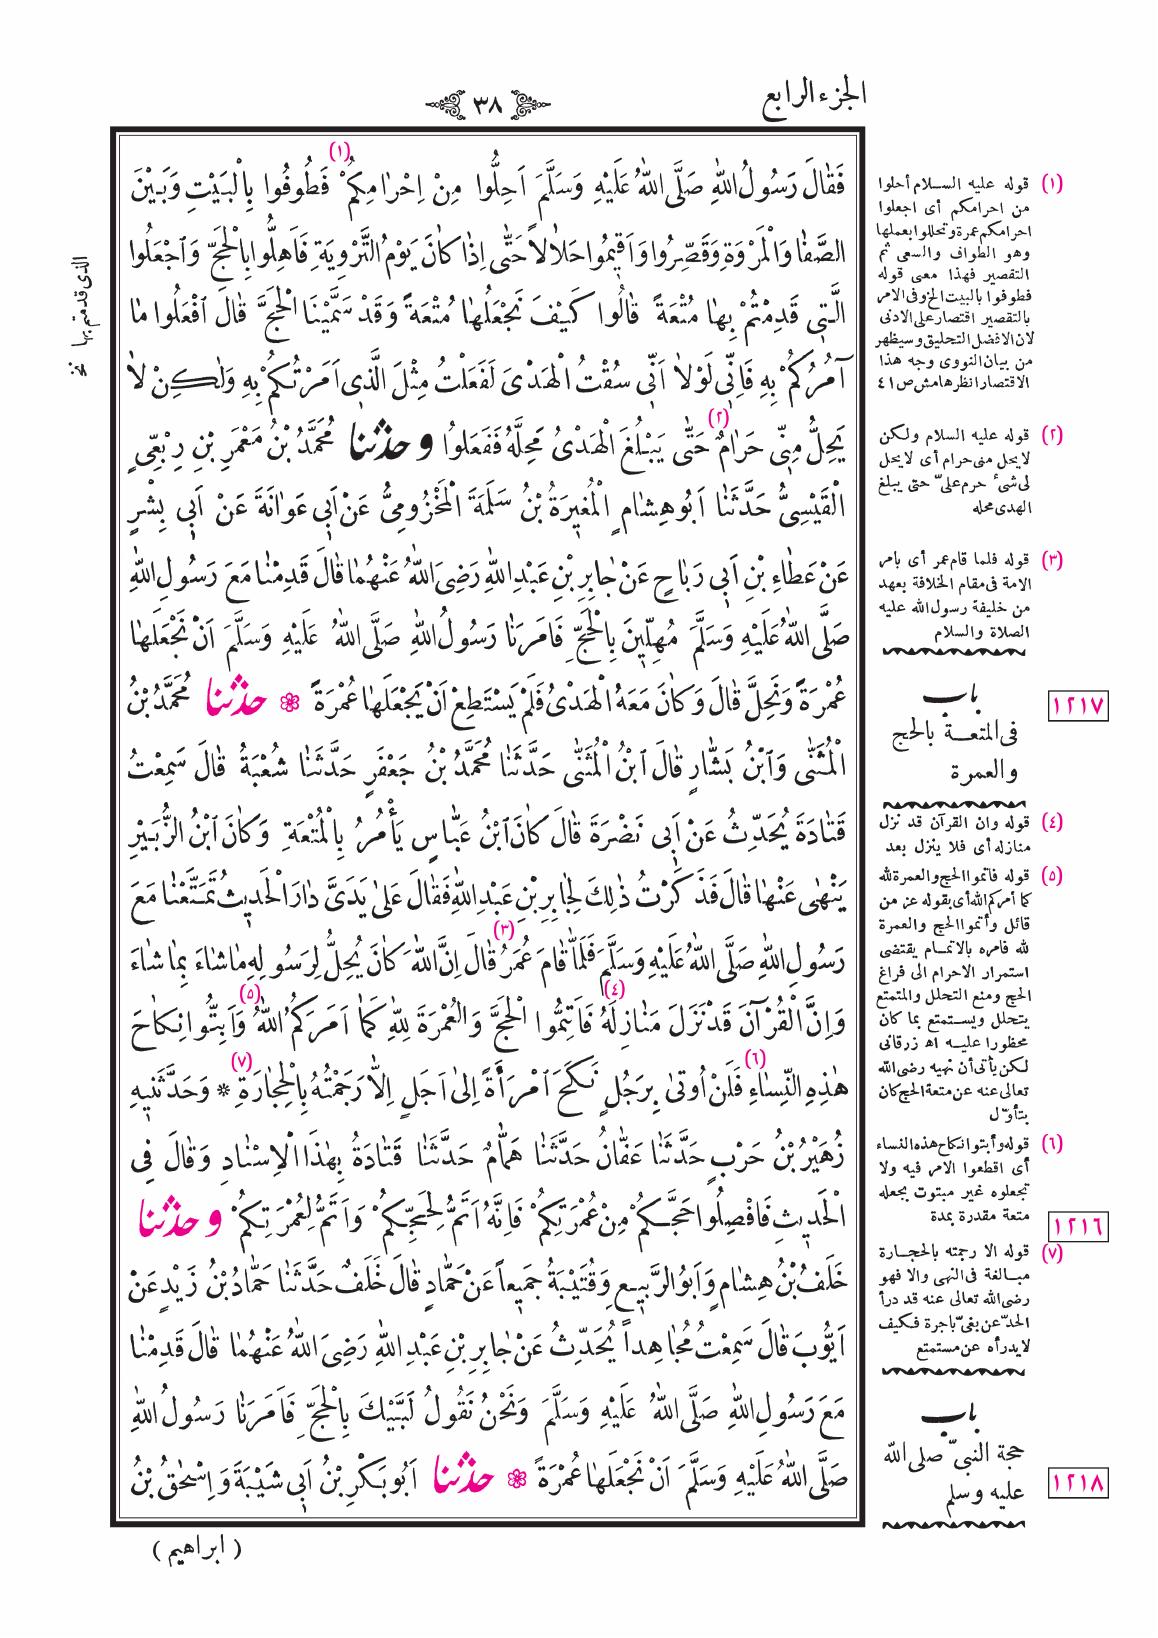 الجزء الرابع
٣٨
فَقٰالَ رَسُولُ اللهِ صَلَّى اللهُ عَلَيْهِ وَسَلَّمَ اَحِلُّوا مِنْ اِحْرٰامِكُمْ (١) فَطُوفُوا بِالْبَيْتِ وَبَيْنَ
الصَّفٰا وَالْمَرْوَةِ وَقَصِّرُوا وَاَقِيمُوا حَلاٰلاً حَتّٰى اِذٰا كٰانَ يَوْمُ التَّرْوِيَةِ فَاَهِلُّوا بِالْحَجِّ وَاجْعَلُوا
الَّتِى قَدِمْتُمْ بِهٰا مُتْعَةً قٰالُوا كَيْفَ نَجْعَلُهٰا مُتْعَةً وَقَدْ سَمَّيْنَا الْحَجَّ قٰالَ افْعَلُوا مٰا
آمُرُكُمْ بِهِ فَاِنِّى لَوْلاٰ اَنِّى سُقْتُ الْهَدْىَ لَفَعَلْتُ مِثْلَ الَّذِى اَمَرْتُكُمْ بِهِ وَلٰكِنْ لاٰ
يَحِلُّ مِنِّى حَرٰامٌ (٢) حَتّٰى يَبْلُغَ الْهَدْىُ مَحِلَّهُ فَفَعَلُوا وحدثنا مُحَمَّدُ بْنُ مَعْمَرِ بْنِ رِبْعِىٍّ
الْقَيْسِىُّ حَدَّثَنٰا اَبُو هِشٰامٍ الْمُغِيرَةُ بْنُ سَلَمَةَ الْمَخْزُومِىُّ عَنْ اَبِى عَوٰانَةَ عَنْ اَبِى بِشْرٍ
عَنْ عَطٰاءِ بْنِ اَبِى رَبٰاحٍ عَنْ جٰابِرِ بْنِ عَبْدِ اللهِ رَضِىَ اللهُ عَنْهُمٰا قٰالَ قَدِمْنٰا مَعَ رَسُولِ اللهِ
صَلَّى اللهُ عَلَيْهِ وَسَلَّمَ مُهِلِّينَ بِالْحَجِّ فَاَمَرَنٰا رَسُولُ اللهِ صَلَّى اللهُ عَلَيْهِ وَسَلَّمَ اَنْ نَجْعَلَهٰا
عُمْرَةً وَنَحِلَّ قٰالَ وَكٰانَ مَعَهُ الْهَدْىُ فَلَمْ يَسْتَطِعْ اَنْ يَجْعَلَهٰا عُمْرَةً ❁ حدثنا مُحَمَّدُ بْنُ
الْمُثَنّٰى وَابْنُ بَشّٰارٍ قٰالَ ابْنُ الْمُثَنّٰى حَدَّثَنٰا مُحَمَّدُ بْنُ جَعْفَرٍ حَدَّثَنٰا شُعْبَةُ قٰالَ سَمِعْتُ
قَتٰادَةَ يُحَدِّثُ عَنْ اَبِى نَضْرَةَ قٰالَ كٰانَ ابْنُ عَبّٰاسٍ يَأْمُرُ بِالْمُتْعَةِ وَكٰانَ ابْنُ الزُّبَيْرِ
يَنْهٰى عَنْهٰا قٰالَ فَذَكَرْتُ ذٰلِكَ لِجٰابِرِ بْنِ عَبْدِ اللهِ فَقٰالَ عَلىٰ يَدَىَّ دٰارَ الْحَدِيثُ تَمَتَّعْنٰا مَعَ
رَسُولِ اللهِ صَلَّى اللهُ عَلَيْهِ وَسَلَّمَ فَلَمّٰا قٰامَ عُمَرُ (٣) قٰالَ اِنَّ اللهَ كٰانَ يُحِلُّ لِرَسُولِهِ مٰا شٰاءَ بِمٰا شٰاءَ
وَاِنَّ الْقُرْآنَ قَدْ نَزَلَ مَنٰازِلَهُ (٤) فَاَتِمُّوا الْحَجَّ وَالْعُمْرَةَ لِلّٰهِ كَمٰا اَمَرَكُمُ اللهُ (٥) وَاَبِتُّوا نِكٰاحَ
هٰذِهِ النِّسٰاءِ (٦) فَلَنْ اُوتىٰ بِرَجُلٍ نَكَحَ امْرَأَةً اِلىٰ اَجَلٍ اِلاّٰ رَجَمْتُهُ بِالْحِجٰارَةِ (٧) * وَحَدَّثَنِيهِ
زُهَيْرُ بْنُ حَرْبٍ حَدَّثَنٰا عَفّٰانُ حَدَّثَنٰا هَمّٰامٌ حَدَّثَنٰا قَتٰادَةُ بِهٰذَا الْاِسْنٰادِ وَقٰالَ فِى
الْحَدِيثِ فَافْصِلُوا حَجَّكُمْ مِنْ عُمْرَتِكُمْ فَاِنَّهُ اَتَمُّ لِحَجِّكُمْ وَاَتَمُّ لِعُمْرَتِكُمْ وحدثنا
خَلَفُ بْنُ هِشٰامٍ وَاَبُو الرَّبِيعِ وَقُتَيْبَةُ جَمِيعاً عَنْ حَمّٰادٍ قٰالَ خَلَفٌ حَدَّثَنٰا حَمّٰادُ بْنُ زَيْدٍ عَنْ
اَيُّوبَ قٰالَ سَمِعْتُ مُجٰاهِداً يُحَدِّثُ عَنْ جٰابِرِ بْنِ عَبْدِ اللهِ رَضِىَ اللهُ عَنْهُمٰا قٰالَ قَدِمْنٰا
مَعَ رَسُولِ اللهِ صَلَّى اللهُ عَلَيْهِ وَسَلَّمَ وَنَحْنُ نَقُولُ لَبَّيْكَ بِالْحَجِّ فَاَمَرَنٰا رَسُولُ اللهِ
صَلَّى اللهُ عَلَيْهِ وَسَلَّمَ اَنْ نَجْعَلَهٰا عُمْرَةً ❁ حدثنا اَبُو بَكْرِ بْنُ اَبِى شَيْبَةَ وَاِسْحٰقُ بْنُ
( ابراهيم )
الذى قدمتم بها نخ
(١) قوله عليه السلام أحلوا
من احرامكم أى اجعلوا
احرامكم عمرة وتحللوا بعملها
وهو الطواف والسعى ثم
التقصير فهذا معنى قوله
فطوفوا بالبيت الخ وفى الامر
بالتقصير اقتصار على الادنى
لان الافضل التحليق وسيظهر
من بيان النووى وجه هذا
الاقتصار انظر هامش ص ٤١
(٢) قوله عليه السلام ولكن
لا يحل منى حرام أى لا يحل
لى شىء حرم علىّ حتى يبلغ
الهدى محله
(٣) قوله فلما قام عمر أى بامر
الامة فى مقام الخلافة بعهد
من خليفة رسول الله عليه
الصلاة والسلام
باب
فى المتعة بالحج
والعمرة
١٢١٧
(٤) قوله وان القرآن قد نزل
منازله أى فلا ينزل بعد
(٥) قوله فاتموا الحج والعمرة لله
كما أمركم الله أى بقوله عز من
قائل وأتموا الحج والعمرة
لله فامره بالاتمام يقتضى
استمرار الاحرام الى فراغ
الحج ومنع التحلل والمتمتع
يتحلل ويستمتع بما كان
محظورا عليه اه زرقانى
لكن يأتى أن نهيه رضى الله
تعالى عنه عن متعة الحج كان
بتأوّل
(٦) قوله وأبتوا نكاح هذه النساء
أى اقطعوا الامر فيه ولا
تجعلوه غير مبتوت بجعله
متعة مقدرة بمدة
١٢١٦
(٧) قوله الا رجمته بالحجارة
مبالغة فى النهى والا فهو
رضى الله تعالى عنه قد درأ
الحدّ عن بغىّ باجرة فكيف
لا يدرأه عن مستمتع
باب
حجة النبىّ صلى الله
عليه وسلم
١٢١٨